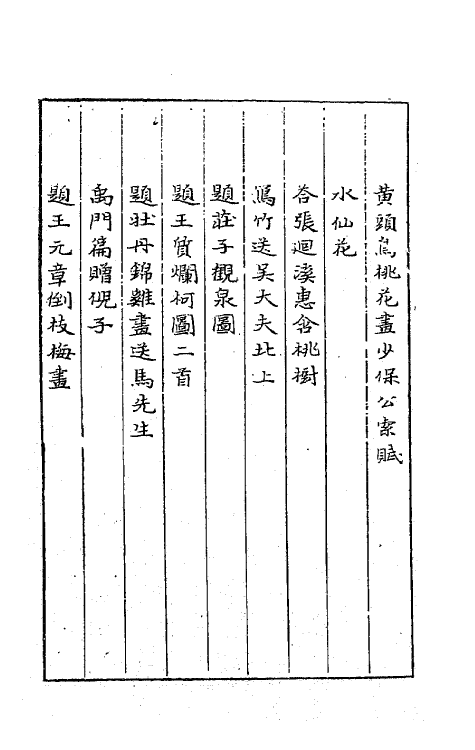 黄頭鳥桃花畫少保公索賦
水仙花
答張迴溪惠含桃樹
寫竹送吳大夫北上
題莊子觀泉圖
題王質爛柯圖二首
題牡丹錦雞畫送馬先生
禹門篇贈硯子
題王元章倒枝梅畫